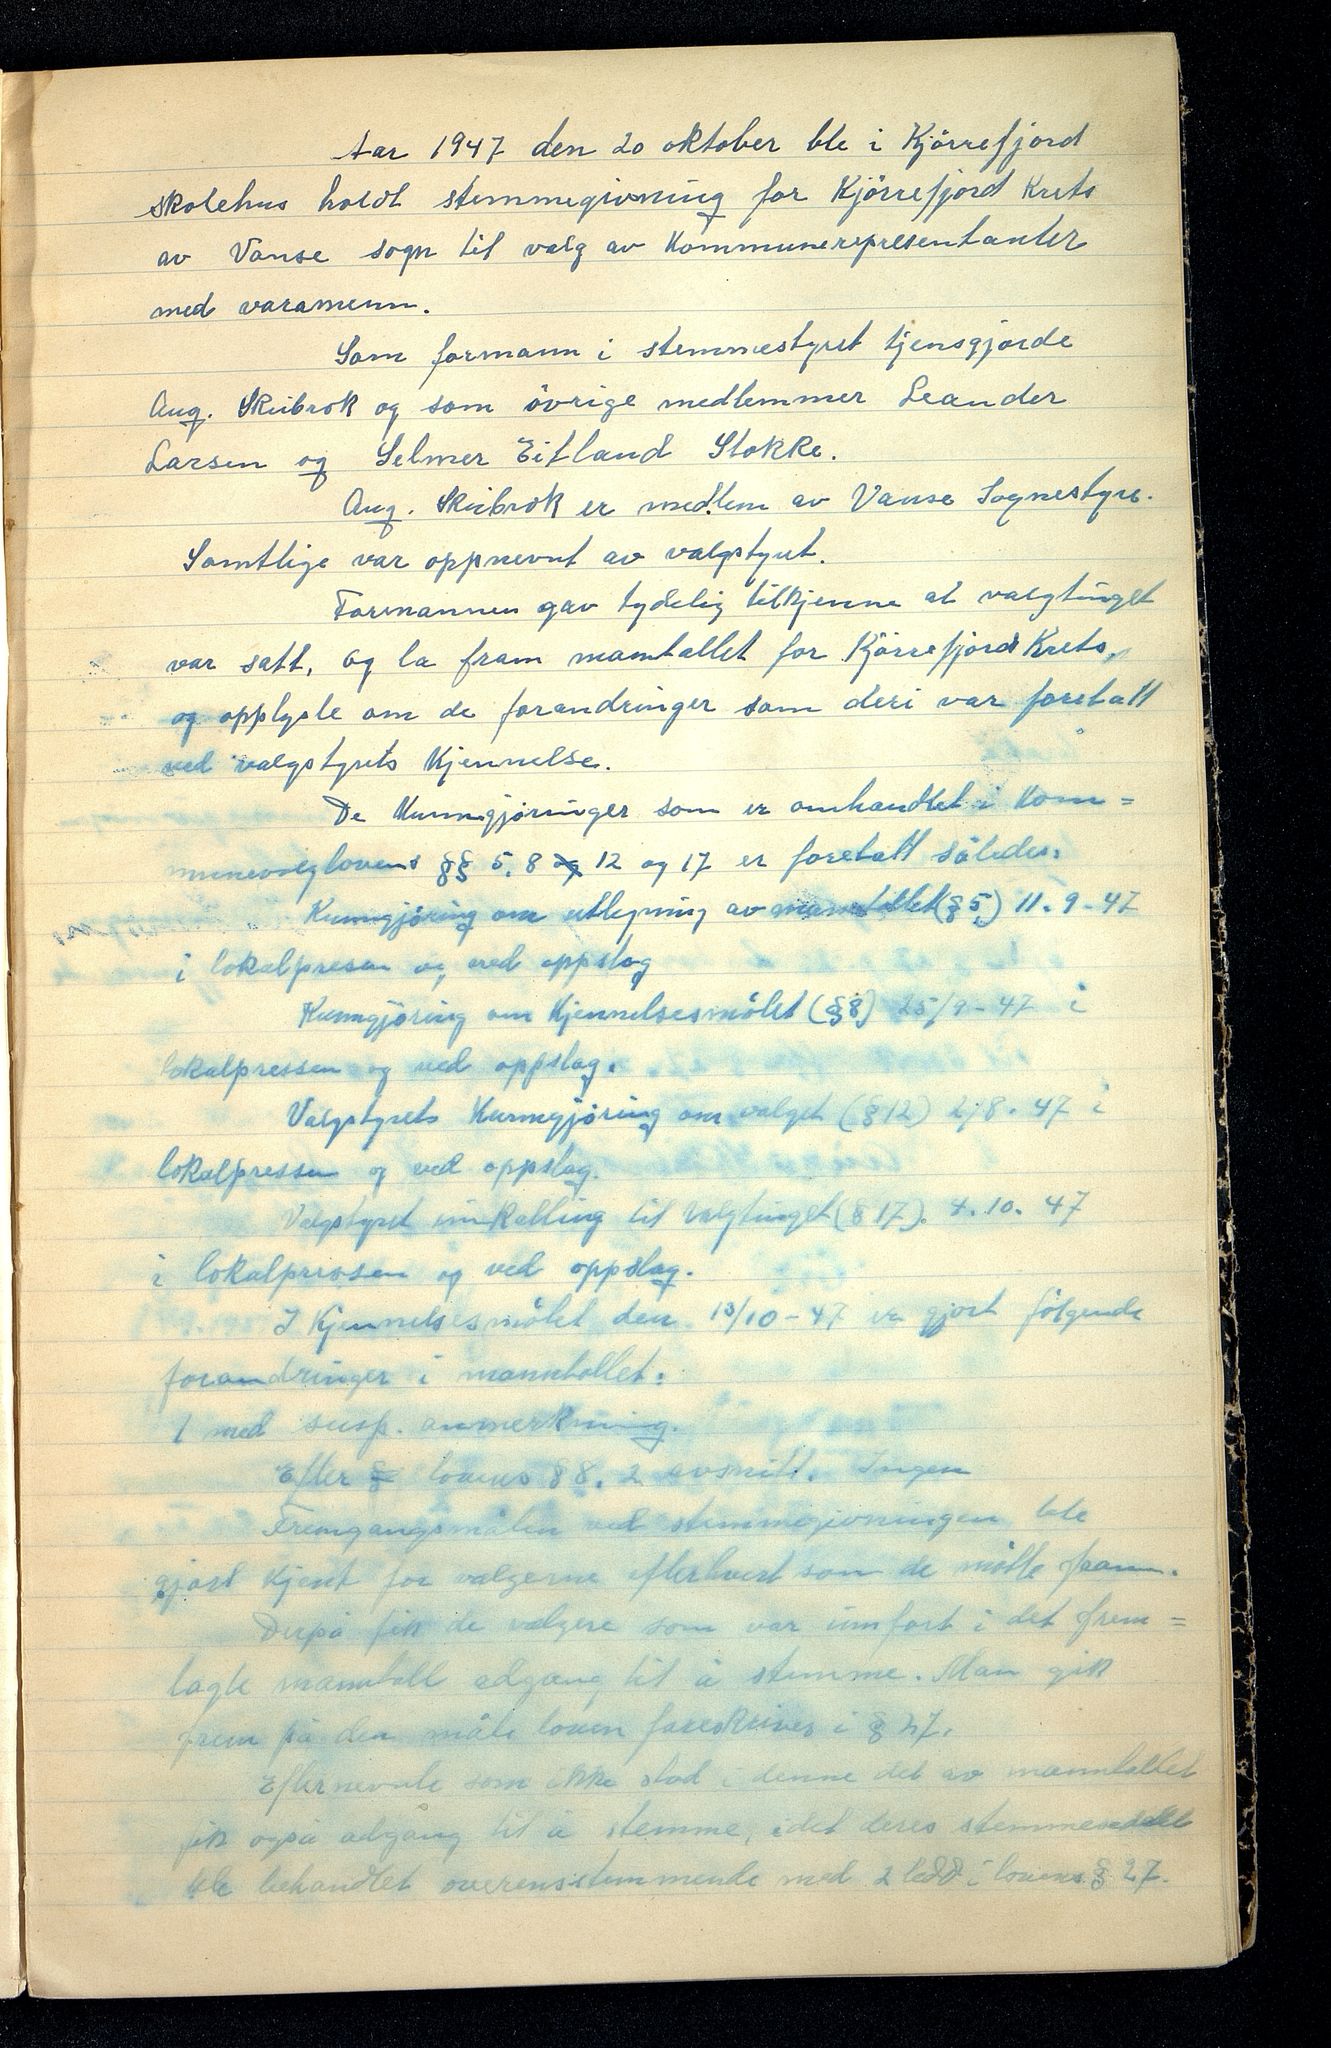 Aar 1947 den 20 oktober ble i Kjörrefjord
skolehus holdt stemmegivning for Kjörrefjord Krets
av Vanse sogn til valg av Kommunerepresentanter
med varamenn.
Som formann i stemmestyret tjensgjorde
Aug. Skibrok og som övrige medlemmer Leander
Larsen og Selmer Eitland Stokke.
Aug. Skibrok er medlem av Vanse Sognestyre.
Samtlige var oppnevnt av valgstyret.
Formannen gav tydelig tilkjenne at valgtinget
var satt, og la fram manntallet for Kjörrefjord Krets,
og opplyste om de forandringer som deri var foretatt
ved valgstyrets Kjennelse.
De Kunngjøringer som er omhandlet i Kom=
munevalglovens §§ 5, 8 og 12 og 17 er foretatt således:
Kunngjöring om utlegning av manntallet (§ 5) 11-9-47
i lokalpresen og ved oppslag
Kunngjöring om Kjennelsesmötet (§8) 25/9-47 i
lokalpressen og ved oppslag.
Valgstyrets Kunngjöring om valget (§ 12) 2/8.47 i
lokalpressen og ved oppslag.
Valgstyret innkalling til Valgtinget (§ 17). 4.10.47
i lokalpressen og ved oppslag.
I Kjennelsesmötet den 13/10-47 er gjort fölgende
forandringer i manntallet:
1 med susp. anmerkning.
Efter § lovens § 8. 2 avsnitt. Ingen
Fremgangsmåten ved stemmegivningen ble
gjort Kjent for velgerne efterhvert som de mötte fram.
Derpå fik de velgere som var innfört i det frem=
lagte manntall adgang til å stemme. Man gik
frem på den måte loven foreskriver i § 27.
Efternevnte som ikke stod i denne del av manntallet
fik også adgang til å stemme, idet deres stemmeseddel
ble behandlet overensstemmende med 2 ledd i lovens § 27.